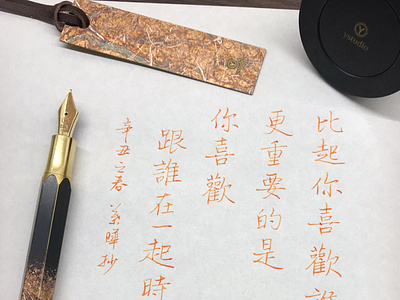 比起你喜歡誰
更重要的是
你喜歡
跟誰在一起時
辛丑之春 葉曄抄
ystudio